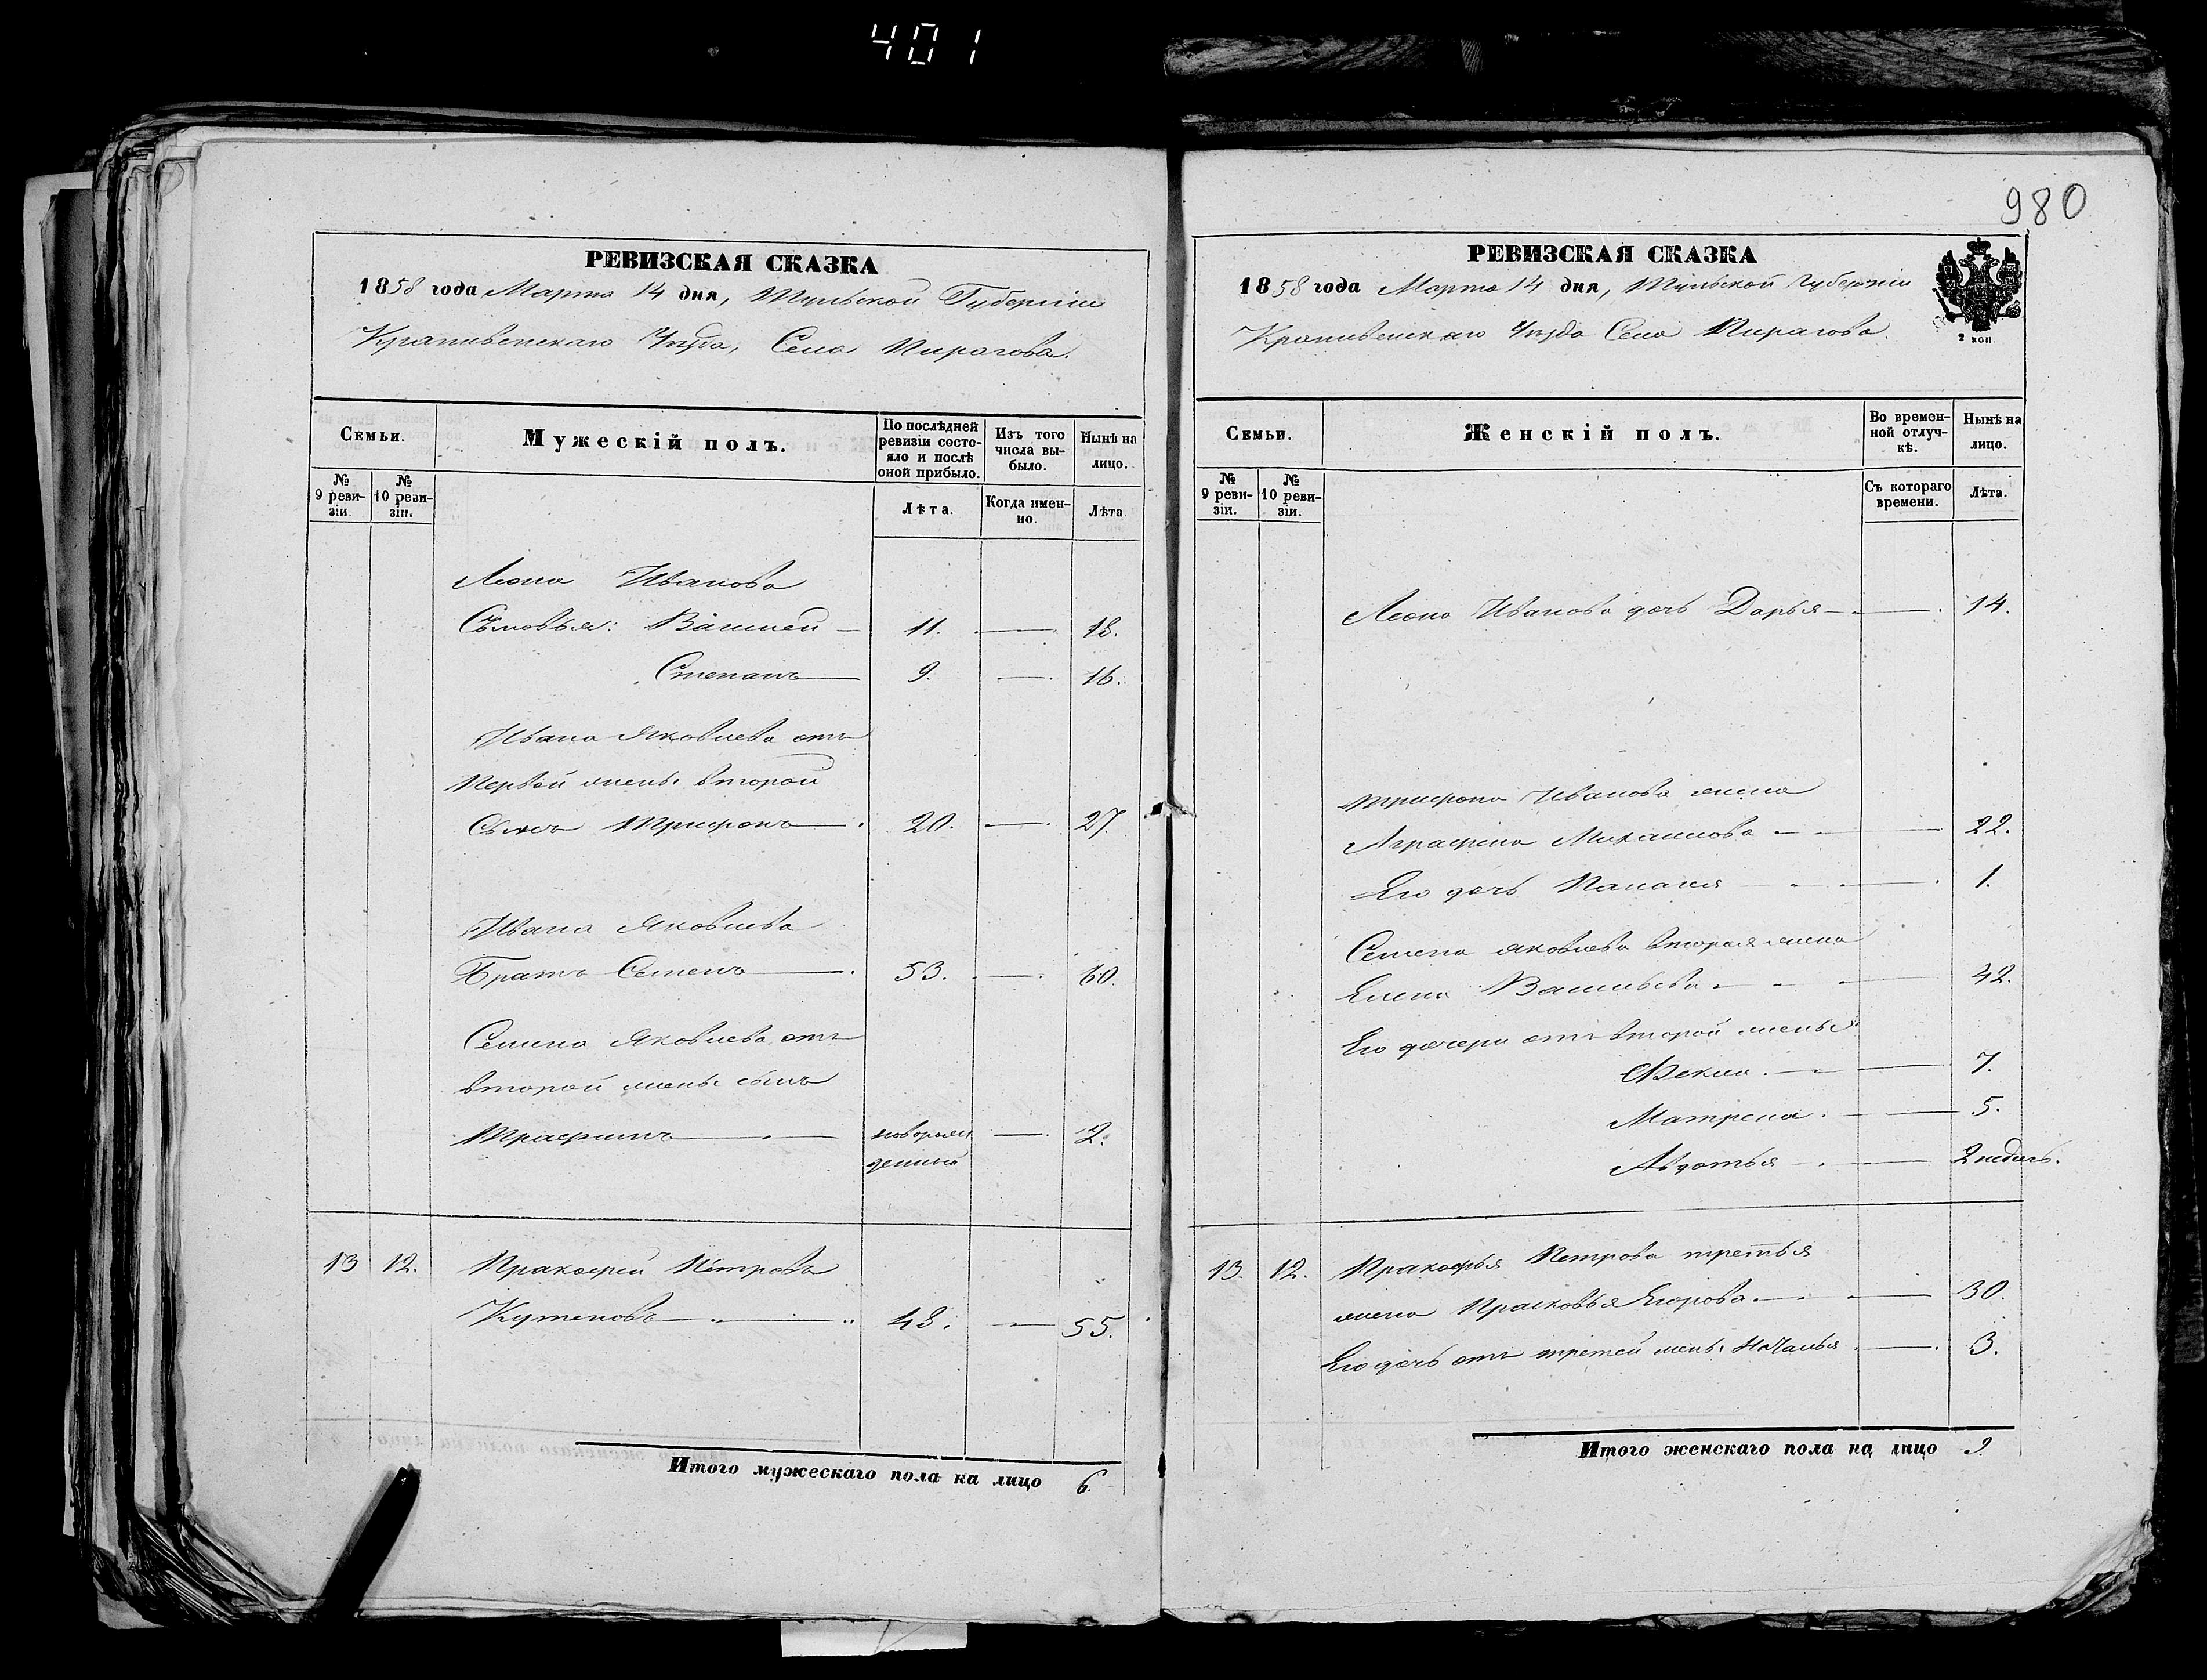 401
980
РЕВИЗСКАЯ СКАЗКА
1858 года Марта 14 дня, Тульской Губерніи
Крапивенскаго Уѣзда, Села Пирагова.
Семьи.
Мужескій полъ.
По послѣдней ревизіи состояло и послѣ оной прибыло.
Изъ того числа выбыло.
Нынѣ на лицо.
№ 9 ревизіи.
№ 10 ревизіи.
Лѣта.
Когда именно.
Лѣта
Леона Иванова
Сыновья: Василей — 11. — 18.
Степанъ — 9. — 16.
Ивана Яковлева отъ
Первой жены второй
Сынъ Трифонъ — 20. — 27.
Ивана Яковлева
Братъ Семенъ — 53. — 60.
Семена Яковлева отъ
второй жены сынъ
Трафимъ — новорож — 2.
денный
13 12. Пракофей Петровъ
Кутеповъ — 48. — 55.
Итого мужескаго пола на лицо 6.
РЕВИЗСКАЯ СКАЗКА
1858 года Марта 14 дня, Тульской Губерніи
Крапивенскаго Уѣзда Села Пирагова.
2 коп
Семьи.
Женскій полъ.
Во временной отлучкѣ.
Нынѣ на лицо.
№ 9 ревизіи.
№ 10 ревизіи.
Съ котораго времени.
Лѣта.
Леона Иванова дочь Дарья — 14.
Трифона Иванова жена
Аграфена Михаилова — 22.
Его дочь — 1.
Семена Яковлева вторая жена
Елена Васильева — 42.
Его дочери отъ второй жены
Фекла. — 7.
Матрена. — 5.
Авдотья — 2 недѣль.
13. 12. Пракофья Петрова третья
жена Прасковья Егорова — 30.
Его дочь отъ третей жены Наталья — 3.
Итого женскаго пола на лицо 9.